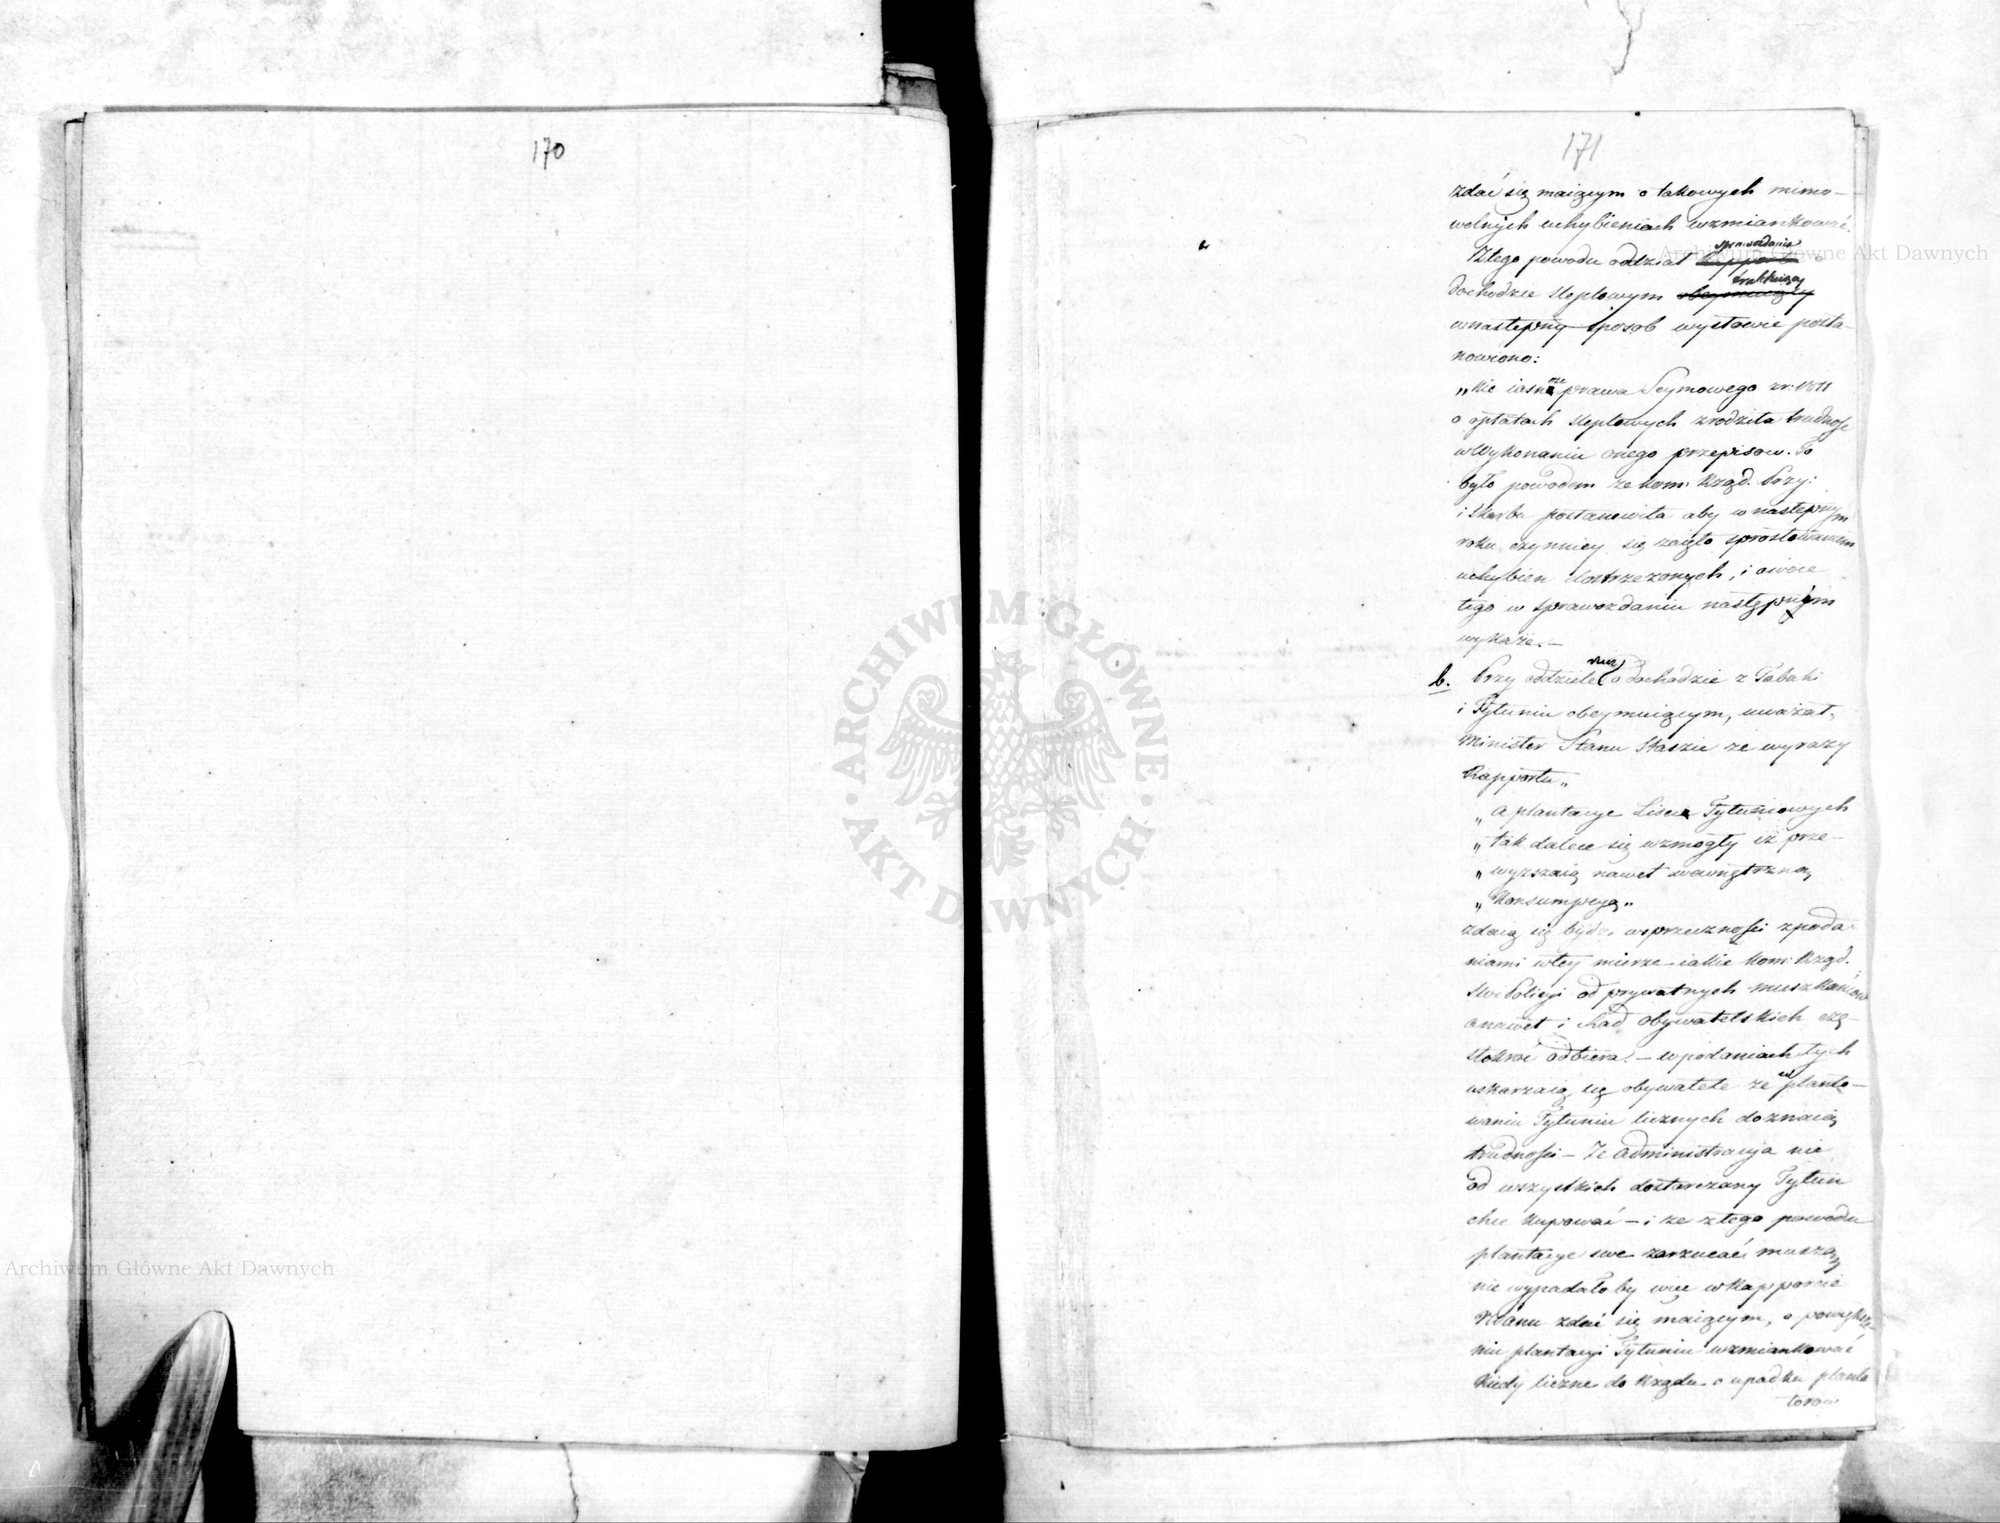 170
171
zdać się maiącym o takowych mimo-
wolnych uchybieniach wzmiankować.
Ztego powodu oddział sprawozdania o
dochodzie steplowym traktuiący
wnastępny sposob wystawić posta-
nowiono:
„Nie iasność prawa Seymowego zr: 1811
o opłatach steplowych zrodziła trudność
wWykonaniu onego przepisow. To
było powodem że kom: Rząd. Przy:
i Skarbu postanowiła aby w następnym
roku czynniey się zaięto sprostowaniem
uchybien dostrzeżonych, i owoce
tego w sprawozdaniu następnym
wykaże.—
b. Przy oddziele rzecz o dochodzie z Tabaki
i Tytuniu obeymuiącym, uważał
Minister Stanu Staszic że wyrazy
Rapportu„
„a plantacye Liścia Tytuniowych
„tak dalece się wzmogły iż prze-
„wyższaią nawet wewnętrzną
„Konsumpcyą„
zdaią się bydź wsprzeczności zpoda-
niami wtey mierze iakie kom: Rząd.
SW: Policyi od prywatnych mieszkańców
a nawet i Rad obywatelskich czę-
stokroć odbiera.— w podaniach tych
uskarżaią się obywatele że w planto-
waniu Tytuniu licznych doznaią
trudności — Że administracya nie
od wszystkich dostarczany Tytuń
chce kupować — i że z tego powodu
plantacye swe zarzucać muszą,
nie wypadałoby więc w Rapporcie
zdać się maiącym, o powiększe-
niu plantacyi Tytuniu wzmiankować
kiedy liczne do Rządu o upadku planta
torow
Archiwum Główne Akt Dawnych
Archiwum Główne Akt Dawnych
ARCHIWUM GŁÓWNE
AKT DAWNYCH